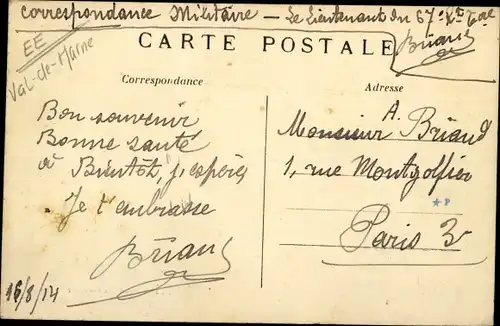 Correspondance Militaire - Le Lieutenant du 67e Rt Tal
Briand
EE
Val-de-Marne
CARTE POSTALE
Correspondance
Adresse
Bon souvenir
Bonne santé
à Bientôt, j'espère
Je t'embrasse
Briand
16/8/14
Monsieur A. Briand
1, rue Montgolfier
*P
Paris 3e